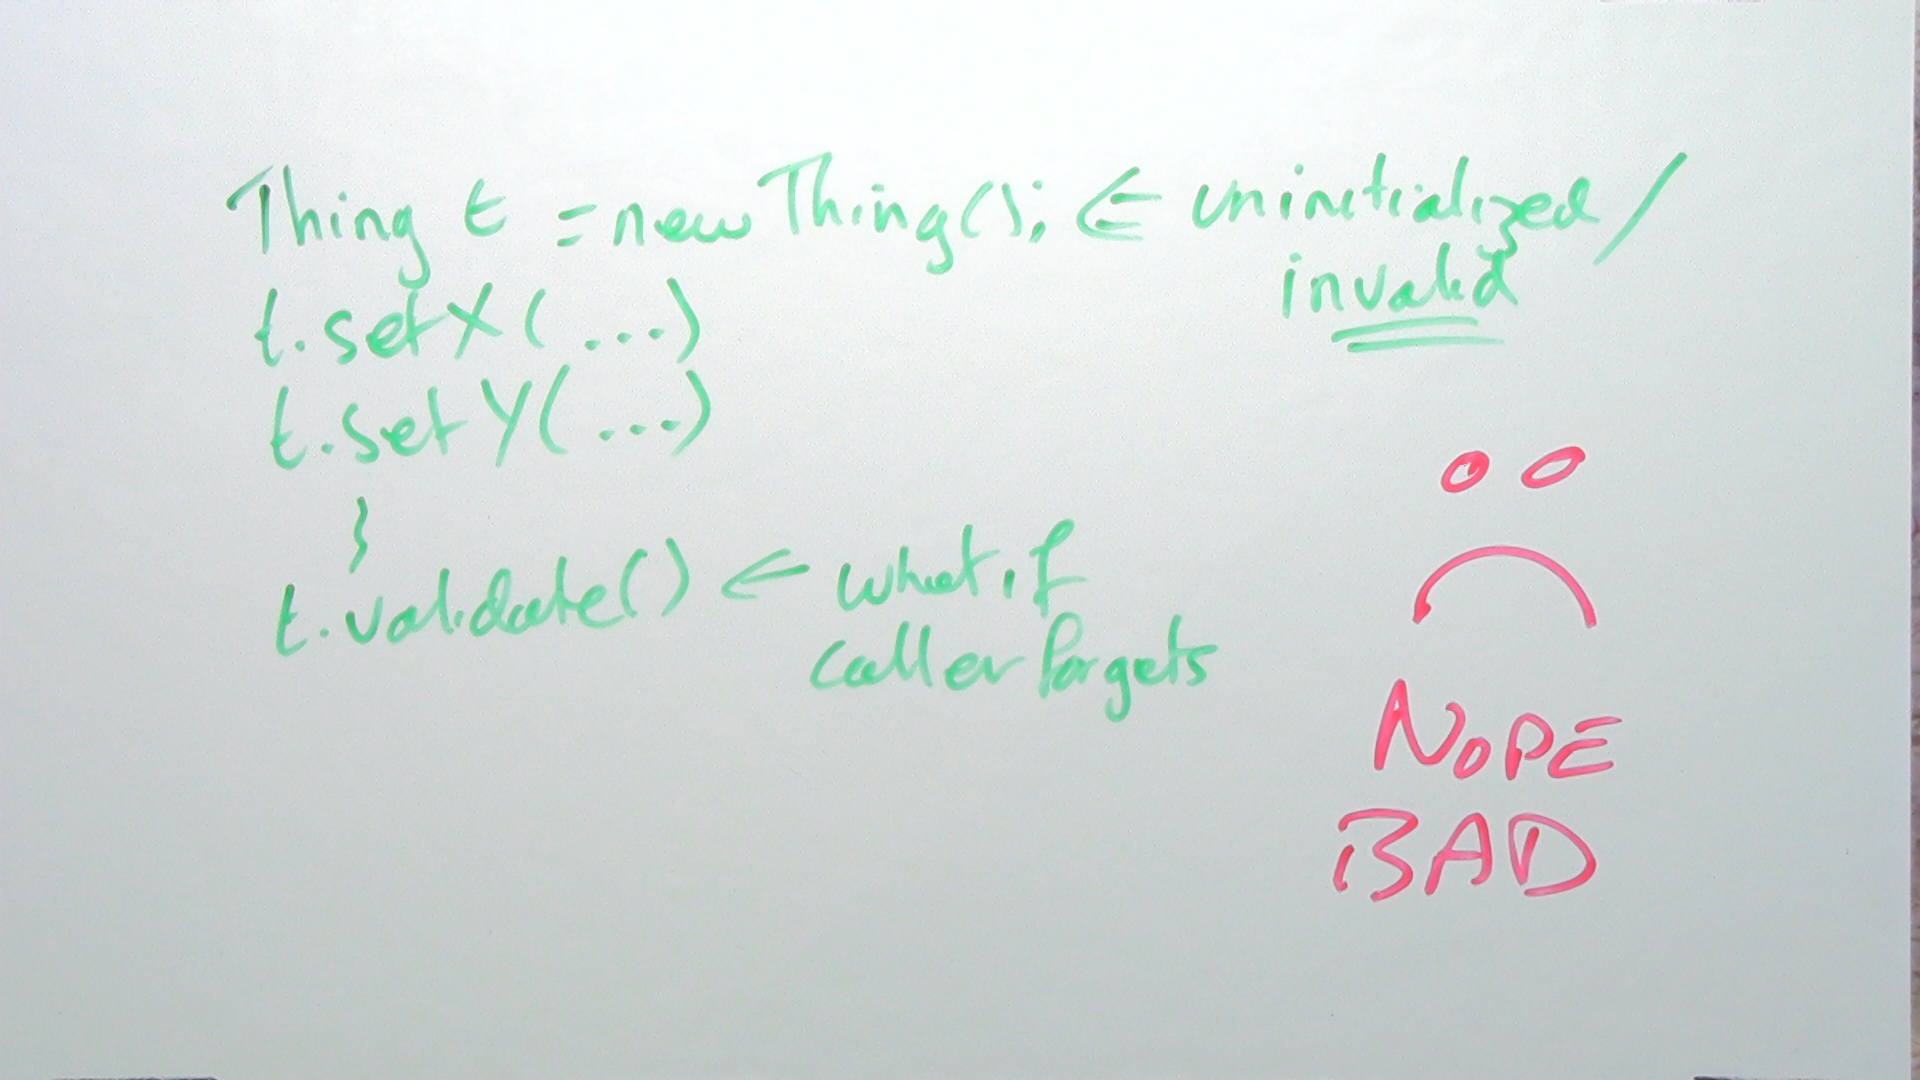 Thing t = new Thing(); ⇐ uninitialized /
invalid
t.setX(...)
t.setY(...)
}
t.validate() ← what if
caller forgets
NOPE
BAD